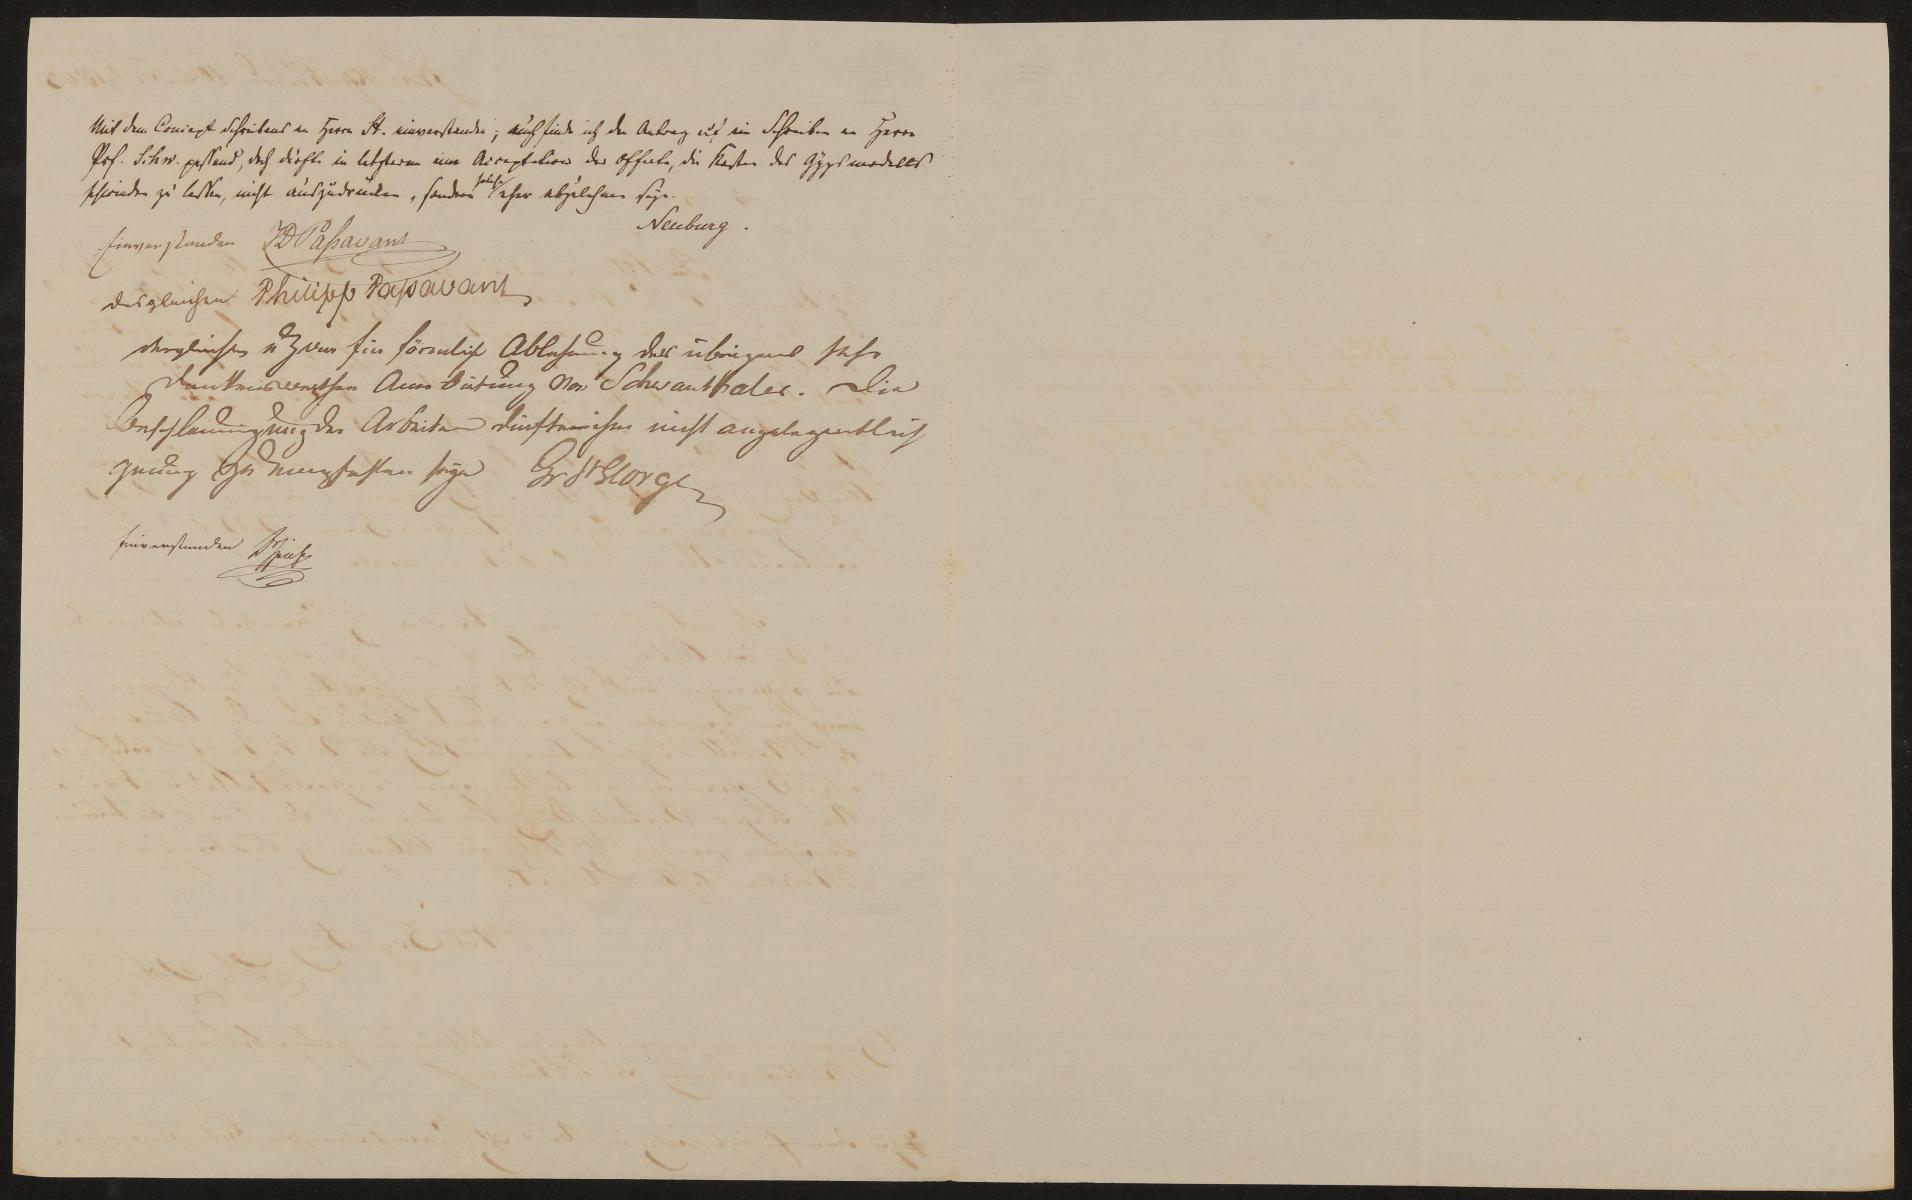 Mit dem Concept Schreibens an Herrn St. einverstanden; auch finde ich den Antrag auf ein Schreiben an Herrn
Prof. Schw. passend, doch dürfte in letzterem eine Acceptation der Offerte, die Kosten des Gypsmodells
schwinden zu lassen, nicht auszudrücken, sondern solche eher abzulehnen seyn.
Neuburg.
Einverstanden JD Paßavant
desgleichen Philipp Paßavant
desgleichen u zwar für förmliche Ablehnung des übrigens sehr
dankenswerthen Anerbietung von Schwanthaler. Die
Beschleunigung der Arbeiten dürfte ihm nicht angelegentlich
genung zu empfehlen seyn Gr St George
einverstanden